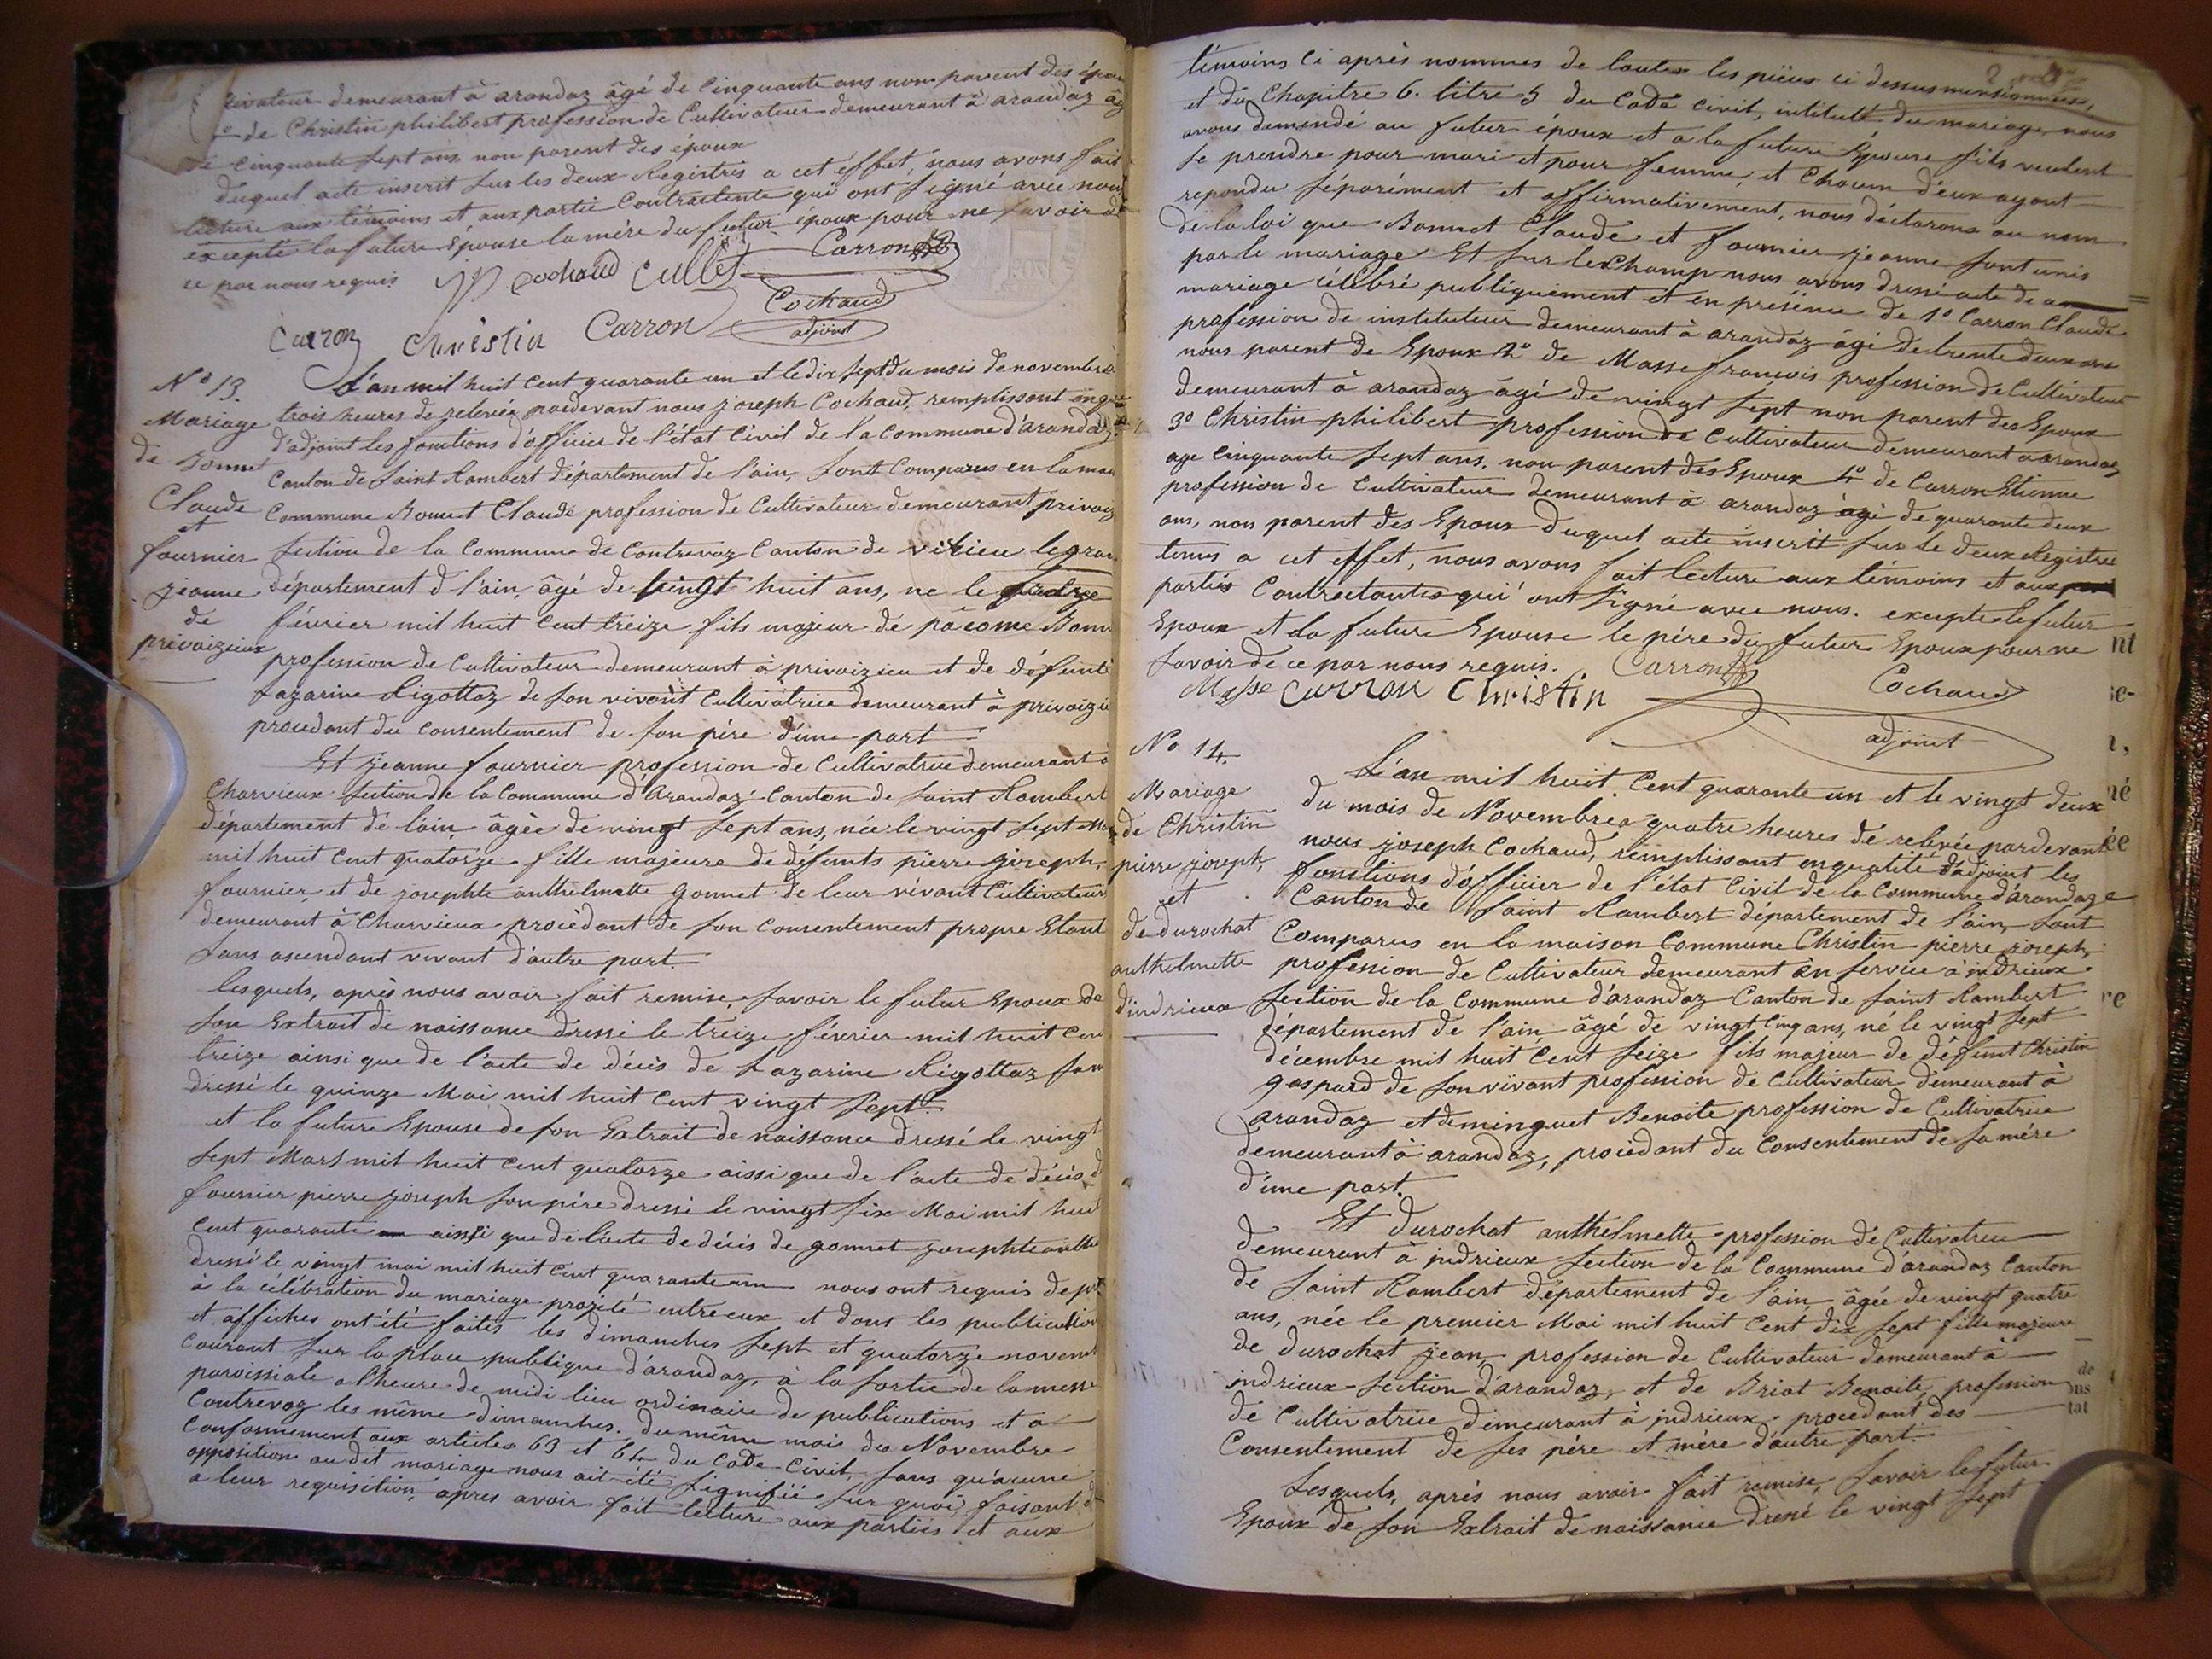 demeurant à arandaz âgé de cinquante ans non parent des
de Christin philibert profession de Cultivateur demeurant à arandaz
cinquante sept ans, non parent des époux
duquel acte inscrit sur les deux Registres a cet effet, nous avons fait
lecture aux témoins et aux partie Contractente qui ont signé avec nous
excepté la future épouse la mére du futur époux pour ne savoir de
ce par nous requis
Cochaud Cullet Carron
Cochaud
adjoint
Carron Christin Carron
No 13.
Mariage
de Bonnet
Claude
et
fournier
jeanne
de
privaizieux
L'an mil huit Cent quarante un et le dix sept du mois de novembre
trois heures de relevée pardevant nous joseph Cochaud, remplissant en
d'adjoint les fonctions d'officier de l'état Civil de la Commune d'Arandaz
Canton de Saint Rambert département de l'ain, sont Comparus en la
Commune Bonnet Claude profession de Cultivateur demeurant
section de la Commune de Contrevoz Canton de virieu le
département d l'ain âgé de vingt huit ans, ne le
février mil huit Cent treize fils majeur de pâcome
profession de Cultivateur demeurant à privaizieu et de défunte
Lazarine Rigottaz de son vivant Cultivatrice demeurant à
procedant du consentement de son père d'une part
Et jeanne fournier profession de Cultivatrice demeurant à
Charvieux section de la Commune d'Arandaz Canton de Saint Rambert
département de l'ain âgée de vingt sept ans, née le vingt sept
mil huit Cent quatorze fille majeure de défunts pierre joseph,
fournier, et de josephte anthelmette gonnet de leur vivant Cultivateurs
demeurant à Charvieux procèdant de son consentement propre Etant
sans ascendant vivant d'autre part.
Lesquels, après nous avoir fait remise, savoir le futur Epoux de
son Extrait de naissance dressé le treize février mil huit
treize ainsi que de l'acte de décès de Lazarine Rigottaz
dressé le quinze Mai mil huit Cent vingt sept.
et la future Epouse de son Extrait de naissance dressé le vingt
sept Mars mil huit Cent quatorze aissi que de l'acte de décès d
fournier pierre joseph son père dressé le vingt six Mai mil
Cent quarante ainssi que de l'acte de décés de gonnet josephte
dressé le vingt mai mil huit Cent quarante un nous ont requis de
à la célébration du mariage projeté entre eux et dont les
et affiches ont été faites les dimanches sept et quatorze
courant sur la place publique d'arandaz, à la sortie de la messe
paroissiale a l'heure de midi lieu ordinaire de publications et a
Contrevoz les même dimanches. du même mois de Novembre
Conformement aux articles 63 et 64 du Code Civil, sans qu'aucune
opposition au dit mariage nous ait été signifiée sur quoi, faisant
a leur requisition, apres avoir fait lecture aux parties et aux
témoins ci après nommes de toutes les pièces ci dessus mensionnées,
et du Chapitre 6. titre 5 du Code civil, intitulé du mariage, nous
avons demendé au futur époux et a la future épouse sils veulent
se prendre pour mari et pour femme, et Chacun d'eux ayant
repondu séparément et affirmativement, nous déclarons au nom
de la loi que Bonnet Claude et fournier jeanne sont unis
par le mariage Et sur le Champ nous avons dressé acte de
mariage célébré publiquement et en présénce de 1o Carron Claude
profession de instituteur demeurant à arandaz âgé de trente deux ans
nous parent de Epoux 2o de Masse francois profession de Cultivateur
demeurant à arandaz âgé de vingt sept non parent des Epoux
3o Christin philibert profession de Cultivateur demeurant a arandaz
age Cinquante sept ans, non parent des Epoux 4o de Carron Etienne
profession de Cultivateur demeurant à arandaz âgé de quarante deux
ans, non parent des Epoux duquel acte inscrit sur le deux Registres
tenus a cet effet, nous avons fait lecture aux témoins et aux
partiés Contractantes qui ont signé avec nous. excepte le futur
Epoux et la future Epouse le père du futur Epoux pour ne
savoir de ce par nous requis.
Masse Carron Christin Carron Cochaud
adjoint
No 14.
Mariage
de Christin
pierre joseph,
et
de durochat
anthelmette
d'indrieux
L'an mil huit Cent quarante un et le vingt deux
du mois de Novembre a quatre heures de relevée pardevant
nous joseph Cochaud, remplissant en qualité d'adjoint les
fonstions d'officier de l'état Civil de la Commune d'arandaz
Canton de Saint Rambert département de l'ain, sont
Comparus en la maison Commune Christin pierre joseph,
profession de Cultivateur demeurant en service à indrieux
section de la Commune d'arandaz Canton de Saint Rambert
département de l'ain âgé de vingt cinq ans, né le vingt sept
décembre mil huit Cent seize fils majeur de défunt Christin
gaspard de son vivant profession de Cultivateur demeurant à
arandaz et de minguet Benoite profession de Cultivatrice
demeurant à arandaz, procèdant du Consentement de sa mére
d'une part.
Et durochat anthelmette profession de Cultivatrice
demeurant à indrieux section de la Commune d'arandaz Canton
de Saint Rambert département de l'ain âgée de vingt quatre
ans, née le premier Mai mil huit Cent dix sept fille majeure
de durochat jean, profession de Cultivateur demeurant à
indrieux section d'arandaz, et de Briat Benoite, profession
de Cultivatrice demeurant à indrieux procedant des
Consentement de ses pére et mére d'autre part.
Lesquels, après nous avoir fait remise, savoir le futur
Epoux de son Extrait de naissance dressé le vingt sept